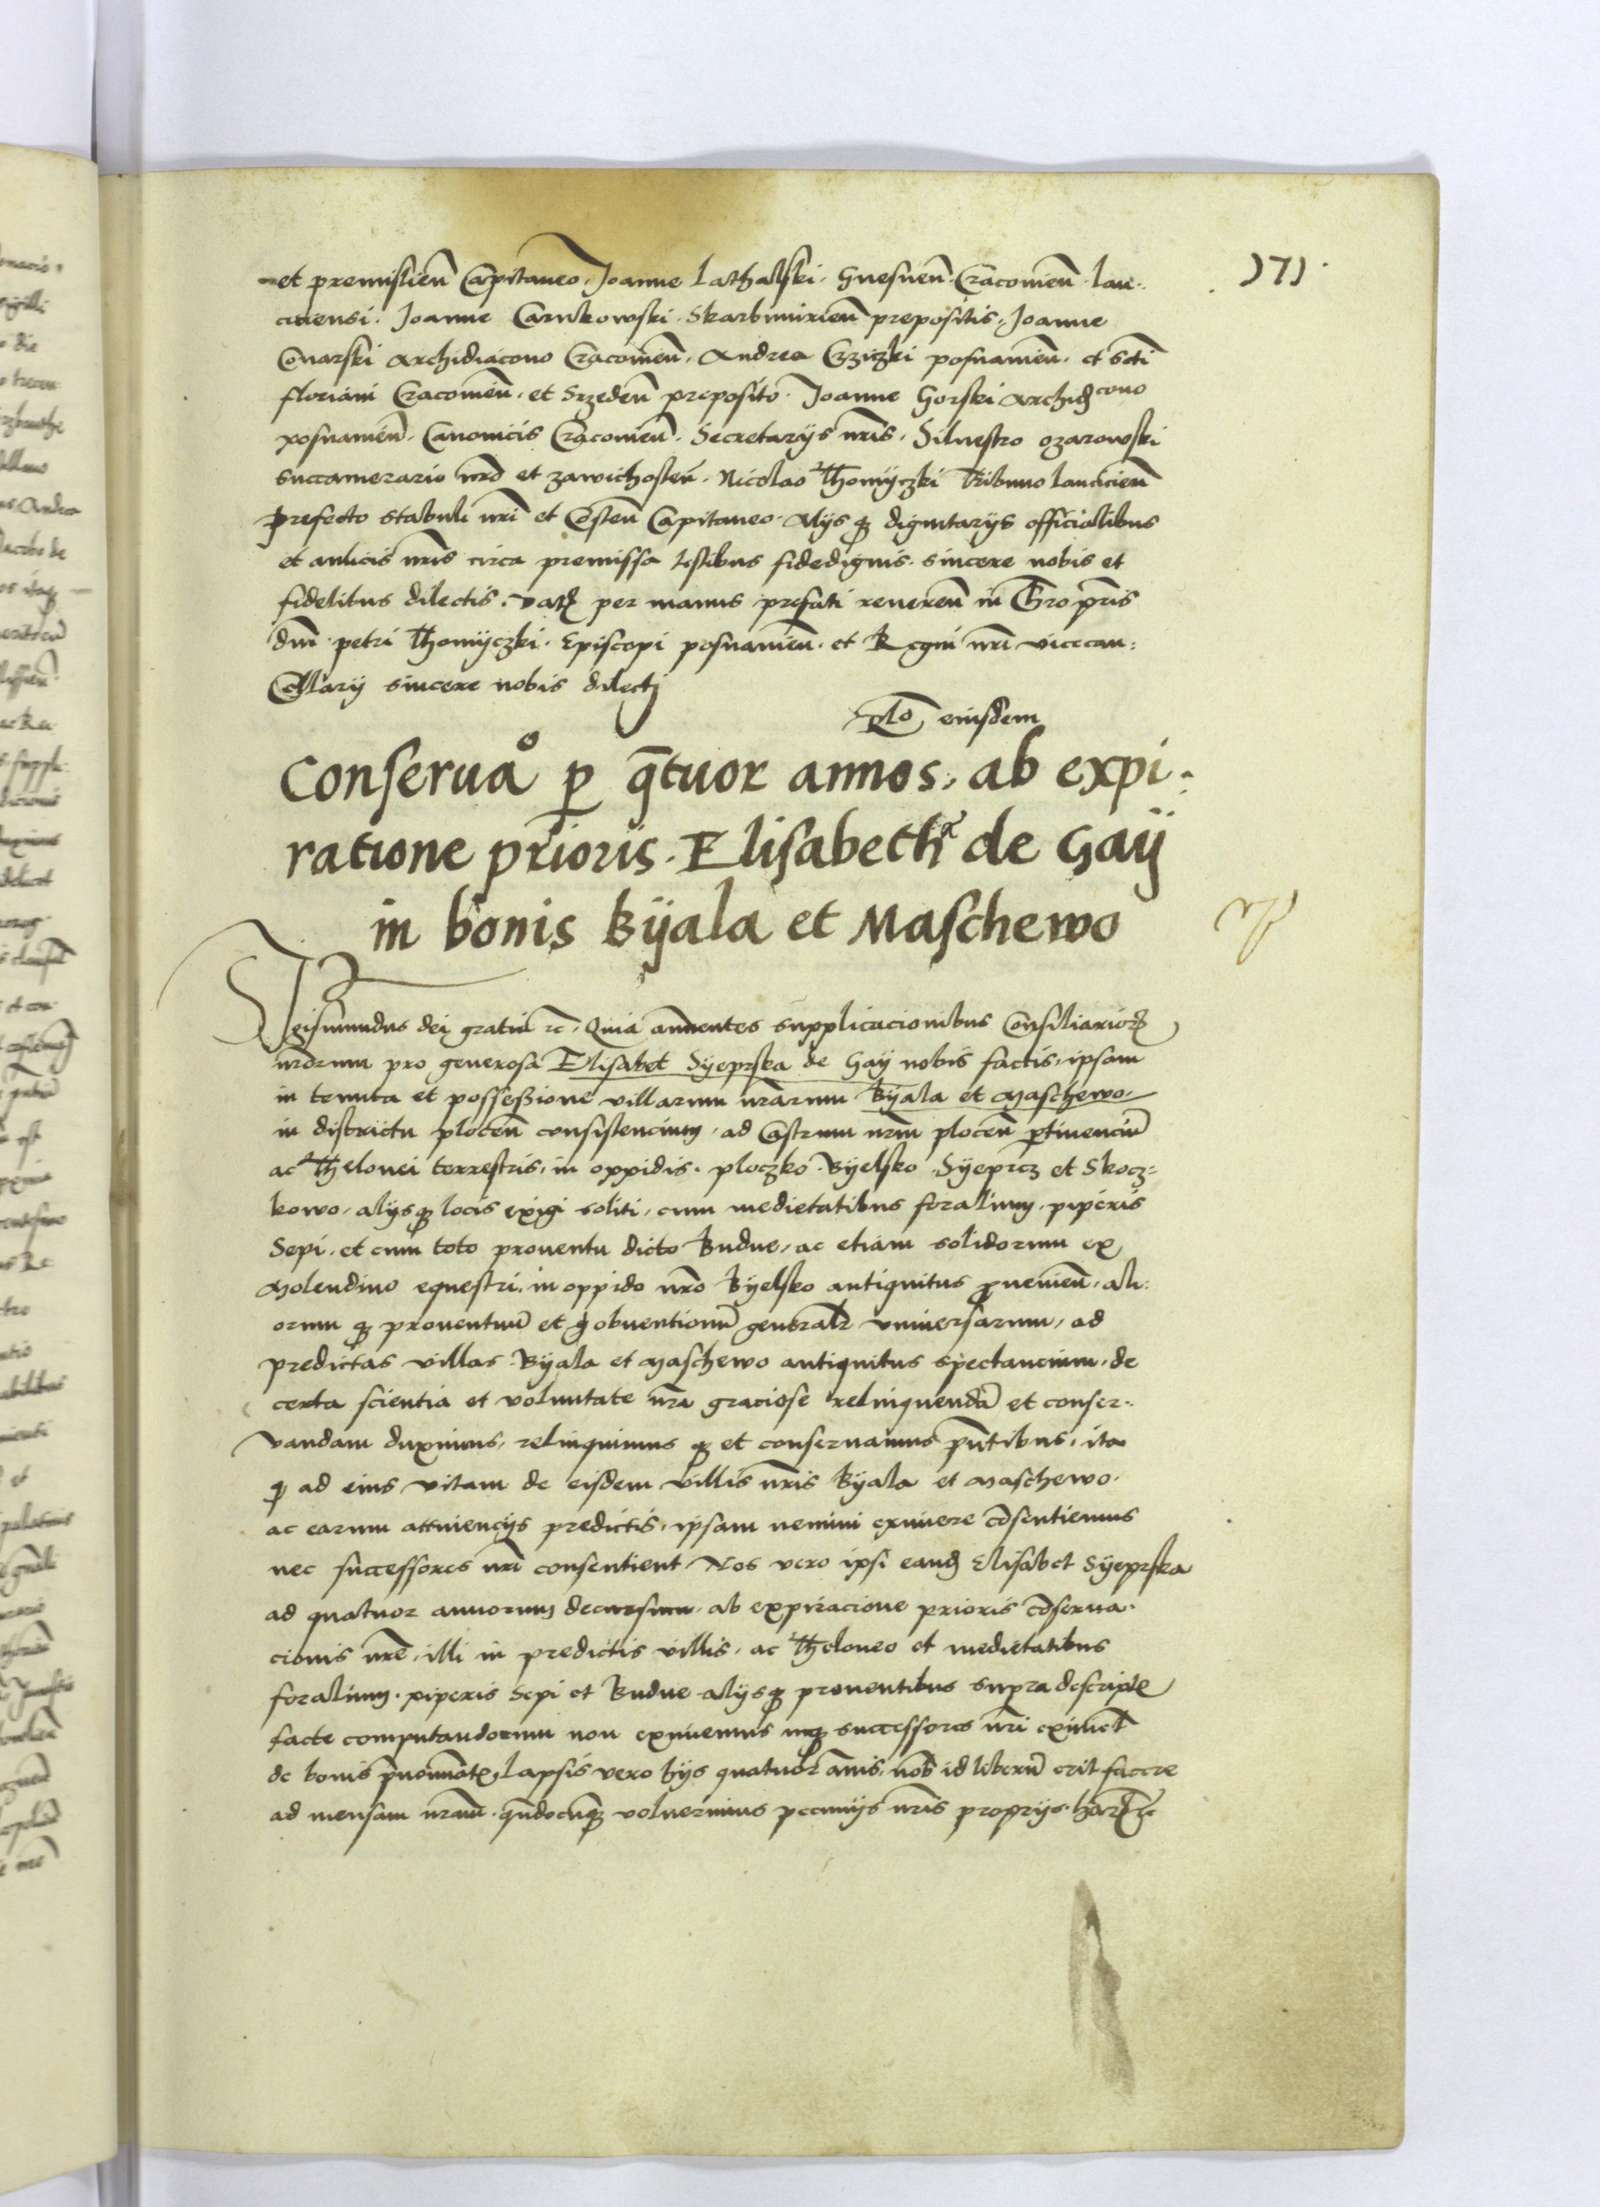 171.
et premislien̄ Capitaneo, Joanne Lathalski, Gnesnen̄ Cracovien̄ Lan-
ciciensi. Joanne Carnkowski Skarbimirien̄ prepositis, Joanne
Conarski Archidiacono Cracovien̄, Andrea Crziczki posnanien̄, et Scti
floriani Cracovien̄, et Srzeden̄ preposito. Joanne Gorski Archidcono
posnanien̄, Canonicis Cracovien̄, Secretarijs nr̄is, Silvestro ozarowski
succamerario nr̄o et zawichosten̄. Nicolao Thomyczki Tribuno lancicien̄
prefecto stabuli nr̄i et Costen̄ Capitaneo. Alijsq dignitarijs officialibus
et aulicis nr̄is circa premissa testibus fidedignis. sincere nobis et
fidelibus dilectis. Dat per manus prefati reveren̄ in Chro pr̄is
dn̄i petri Thomyczki. Episcopi posnanien̄. et Regni nr̄i vicecan-
Cellarij sincere nobis dilecti
Rlo eiusdem
Conservao p qtuor annos, ab expi-
ratione prioris. Elisabeth de Gaÿ
in bonis Bÿala et Maschewo
Sigismundus dei gratia rc, Quia annuentes supplicacionibus Consiliarior
nr̄orum pro generosa Elisabet Syeprska de Gay nobis factis, ipsam
in tenuta et possessione villarum nr̄arum Byala et Maschewo,
in districtu plocen̄ consistencium, ad Castrum nr̄m plocen̄ ptinenciū
ac Thelonei terrestris, in oppidis. ploczko Byelsko Syeprcz et Skocz-
kowo, alijsq locis exigi soliti, cum medietatibus foralium, piperis
Sepi. et cum toto proventu dicto Budne, ac etiam solidorum ex
Molendino equestri, in oppido nr̄o Byelsko antiquitus pvenien̄, ali-
orum q proventuū et obventionū generalr universarum, ad
predictas villas Byala et Maschewo antiquitus spectancium, de
certa scientia et voluntate nr̄a graciose relinquendā et conser-
vandam duximus, relinquimus q et conservamus pn̄tibus, ita
q ad eius vitam de eisdem villis nr̄is Byala et Maschewo.
ac earum attinencijs predictis, ipsam nemini eximere cōsentiemus
nec successores nr̄i consentient. Nos vero ipsi eand Elisabet Syeprska
ad quatuor annorum decursum, ab expiracione prioris cōserva-
cionis nr̄e, illi in predictis villis, ac Theloneo et medietatibus
foralium, piperis Sepi et Budne alijsq proventibus supra descripte
facte computandorum non eximemus neq successores nr̄i eximēt
de bonis pnominat, Lapsis vero hijs quatuor annis, nob id liberū erit facere
ad mensam nr̄am. qn̄docunq voluerimus pecunijs nr̄is proprijs. harū rc